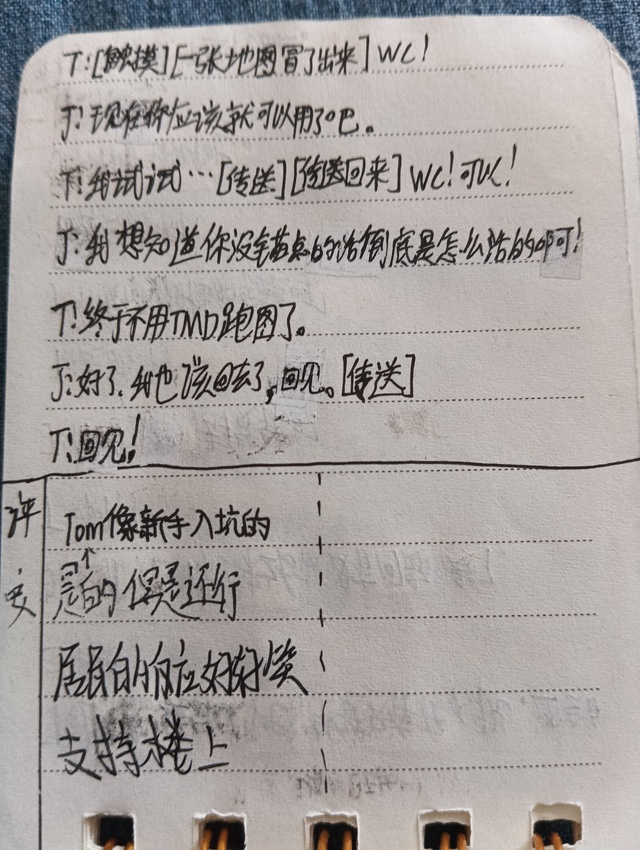 T:[触摸][一张地图冒了出来]WC!
J:现在你应该就可以用了吧。
T:我试试…[传送][传送回来]WC!可以!
J:我想知道你没锚点的话到底是怎么活的啊!
T:终于不用TMD跑图了。
J:好了,我也该回去了,回见。[传送]
T:回见!
评
Tom像新手入坑的
是的 但是还行
居民的反应好好笑
支持楼上